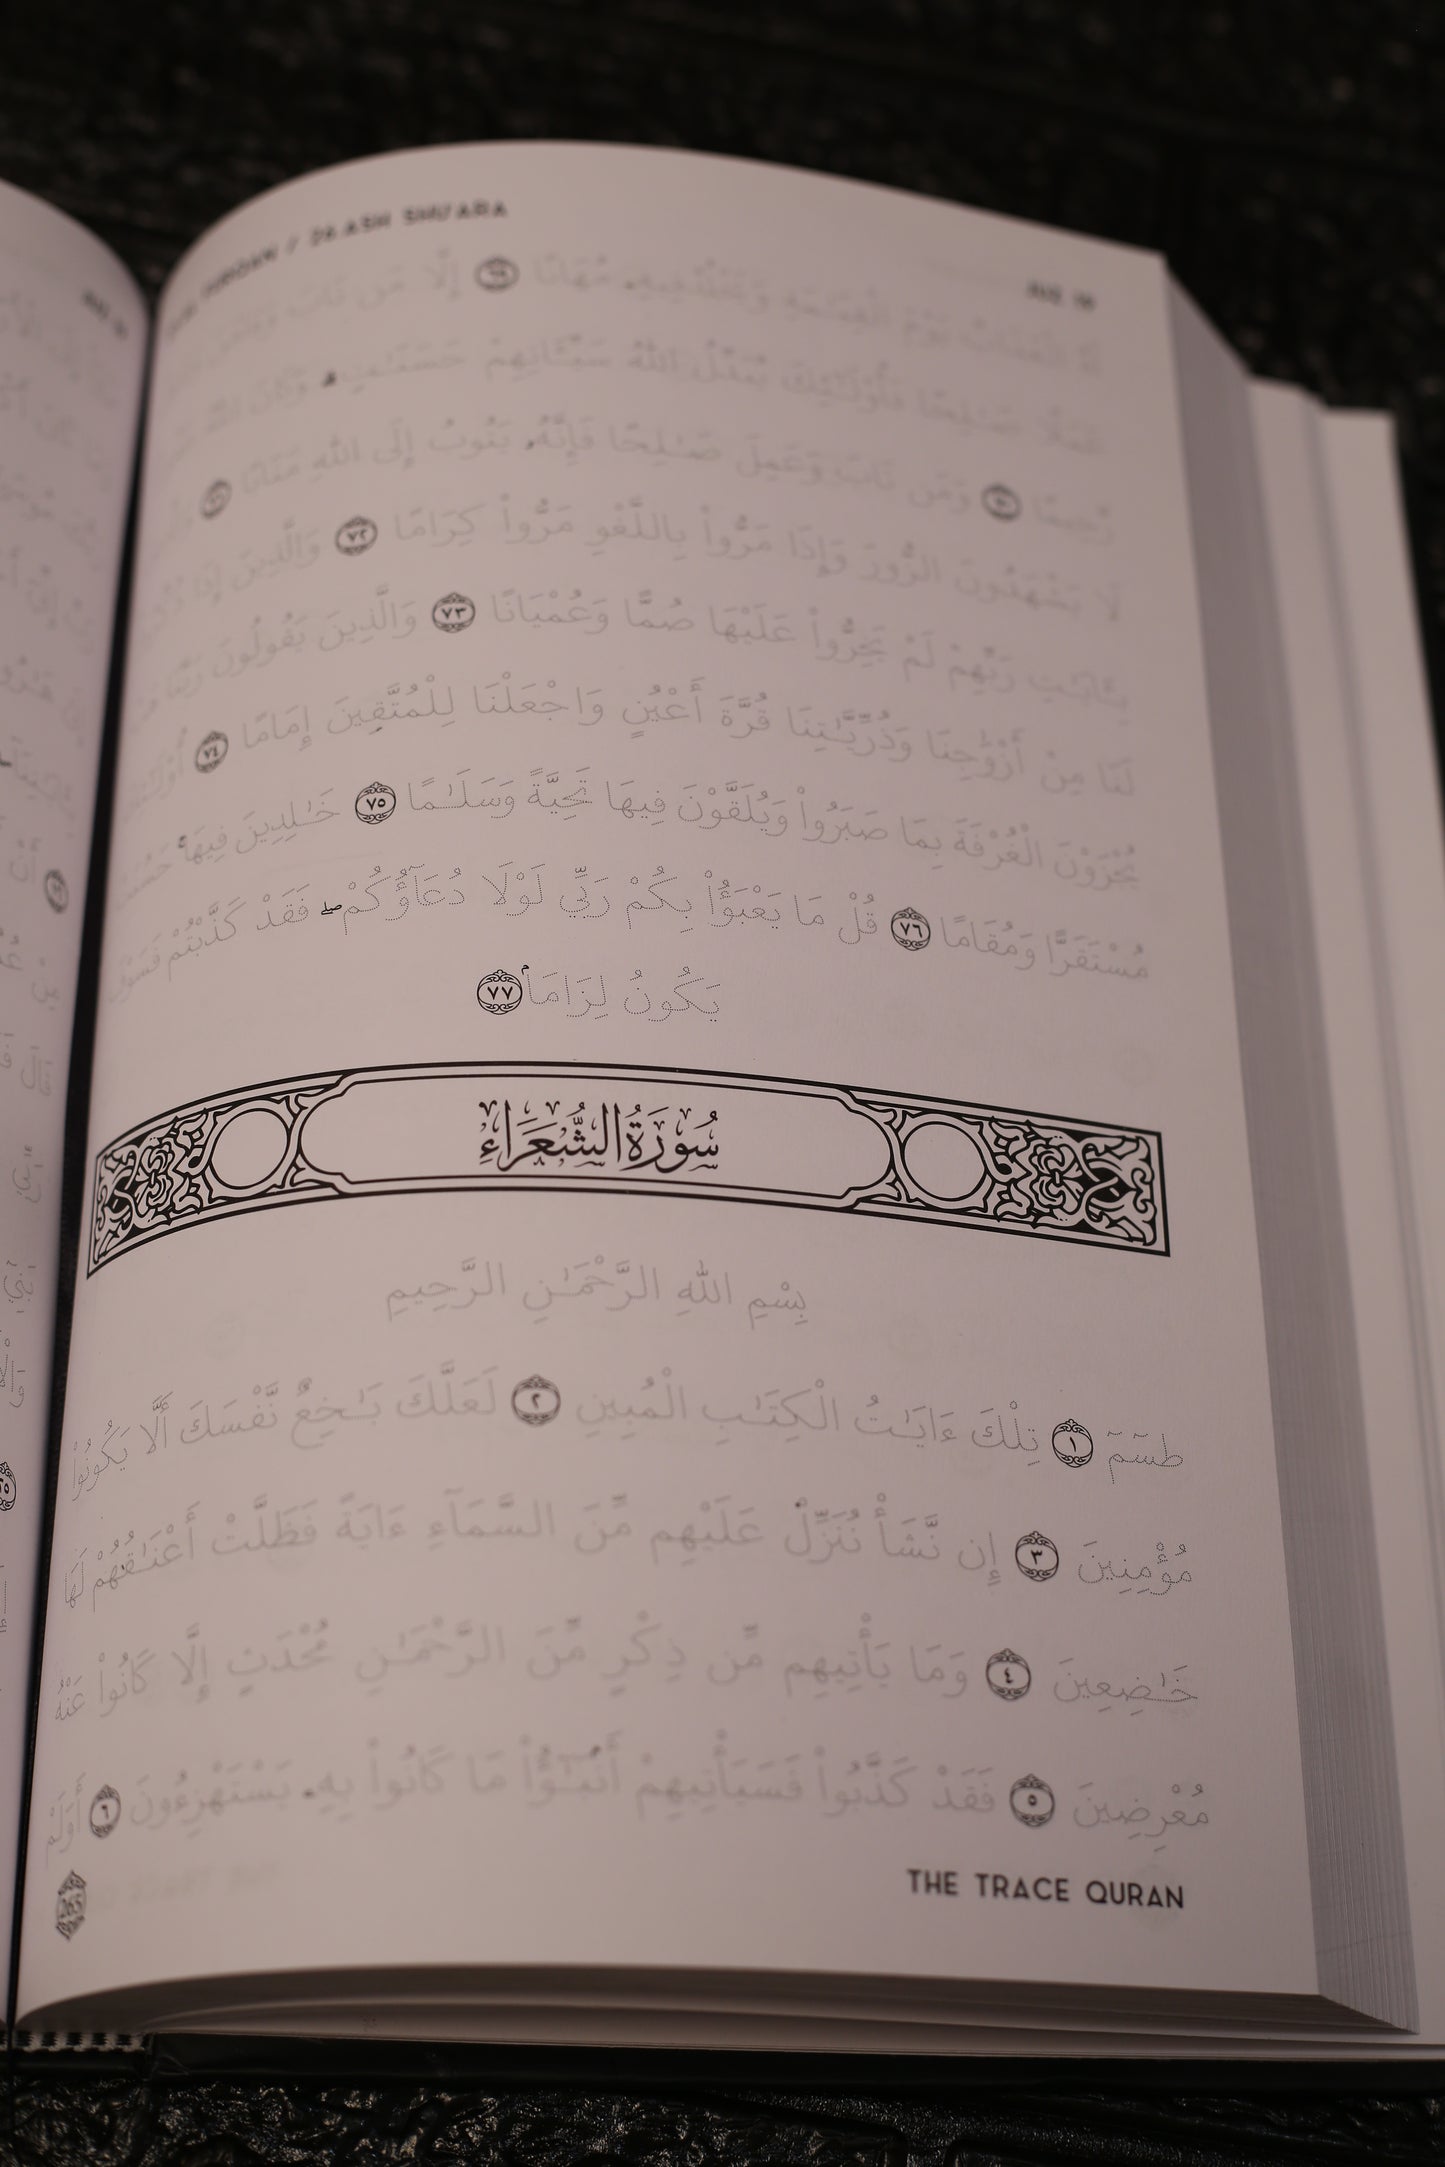 FURQAN // 26.ASH SHU'ARA
JUZ 19
لَهُ الْعَذَابُ يَوْمَ الْقِيَـٰمَةِ وَيَخْلُدْ فِيهِۦ مُهَانًا ٦٩ إِلَّا مَن تَابَ وَءَامَنَ
عَمَلًا صَـٰلِحًا فَأُوْلَـٰٓئِكَ يُبَدِّلُ اللَّهُ سَيِّـَٔاتِهِمْ حَسَنَـٰتٍ ۗ وَكَانَ اللَّهُ
رَّحِيمًا ٧٠ وَمَن تَابَ وَعَمِلَ صَـٰلِحًا فَإِنَّهُۥ يَتُوبُ إِلَى اللَّهِ مَتَابًا ٧١
لَا يَشْهَدُونَ الزُّورَ وَإِذَا مَرُّواْ بِاللَّغْوِ مَرُّواْ كِرَامًا ٧٢ وَالَّذِينَ إِذَا
بِـَٔايَـٰتِ رَبِّهِمْ لَمْ يَخِرُّواْ عَلَيْهَا صُمًّا وَعُمْيَانًا ٧٣ وَالَّذِينَ يَقُولُونَ رَبَّنَا
لَنَا مِنْ أَزْوَٰجِنَا وَذُرِّيَّـٰتِنَا قُرَّةَ أَعْيُنٍ وَاجْعَلْنَا لِلْمُتَّقِينَ إِمَامًا ٧٤
يُجْزَوْنَ الْغُرْفَةَ بِمَا صَبَرُواْ وَيُلَقَّوْنَ فِيهَا تَحِيَّةً وَسَلَـٰمًا ٧٥ خَـٰلِدِينَ فِيهَا ۚ
مُسْتَقَرًّا وَمُقَامًا ٧٦ قُلْ مَا يَعْبَؤُاْ بِكُمْ رَبِّي لَوْلَا دُعَآؤُكُمْ ۖ فَقَدْ كَذَّبْتُمْ فَسَوْفَ
يَكُونُ لِزَامَاۢ ٧٧
سُورَةُ الشُّعَرَاءِ
بِسْمِ اللَّهِ الرَّحْمَـٰنِ الرَّحِيمِ
طسٓمٓ ١ تِلْكَ ءَايَـٰتُ الْكِتَـٰبِ الْمُبِينِ ٢ لَعَلَّكَ بَـٰخِعٌ نَّفْسَكَ أَلَّا يَكُونُواْ
مُؤْمِنِينَ ٣ إِن نَّشَأْ نُنَزِّلْ عَلَيْهِم مِّنَ السَّمَآءِ ءَايَةً فَظَلَّتْ أَعْنَـٰقُهُمْ لَهَا
خَـٰضِعِينَ ٤ وَمَا يَأْتِيهِم مِّن ذِكْرٍ مِّنَ الرَّحْمَـٰنِ مُحْدَثٍ إِلَّا كَانُواْ عَنْهُ
مُعْرِضِينَ ٥ فَقَدْ كَذَّبُواْ فَسَيَأْتِيهِمْ أَنۢبَـٰٓؤُاْ مَا كَانُواْ بِهِۦ يَسْتَهْزِءُونَ ٦ أَوَلَمْ
THE TRACE QURAN